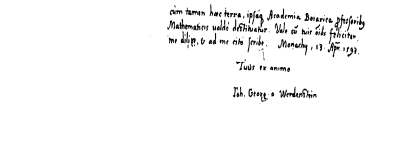 cùm tamen haec terra, ipsaq́ Academia Boiarica p̄fessoribq
Mathematicis ualdè destituatur. Vale cū tuis oīb feliciter.
me dilige, & ad me cito scribe. Monachij, 13. Apr. 1597.
Tuus ex animo
Joh. Georg. a Werdenstein